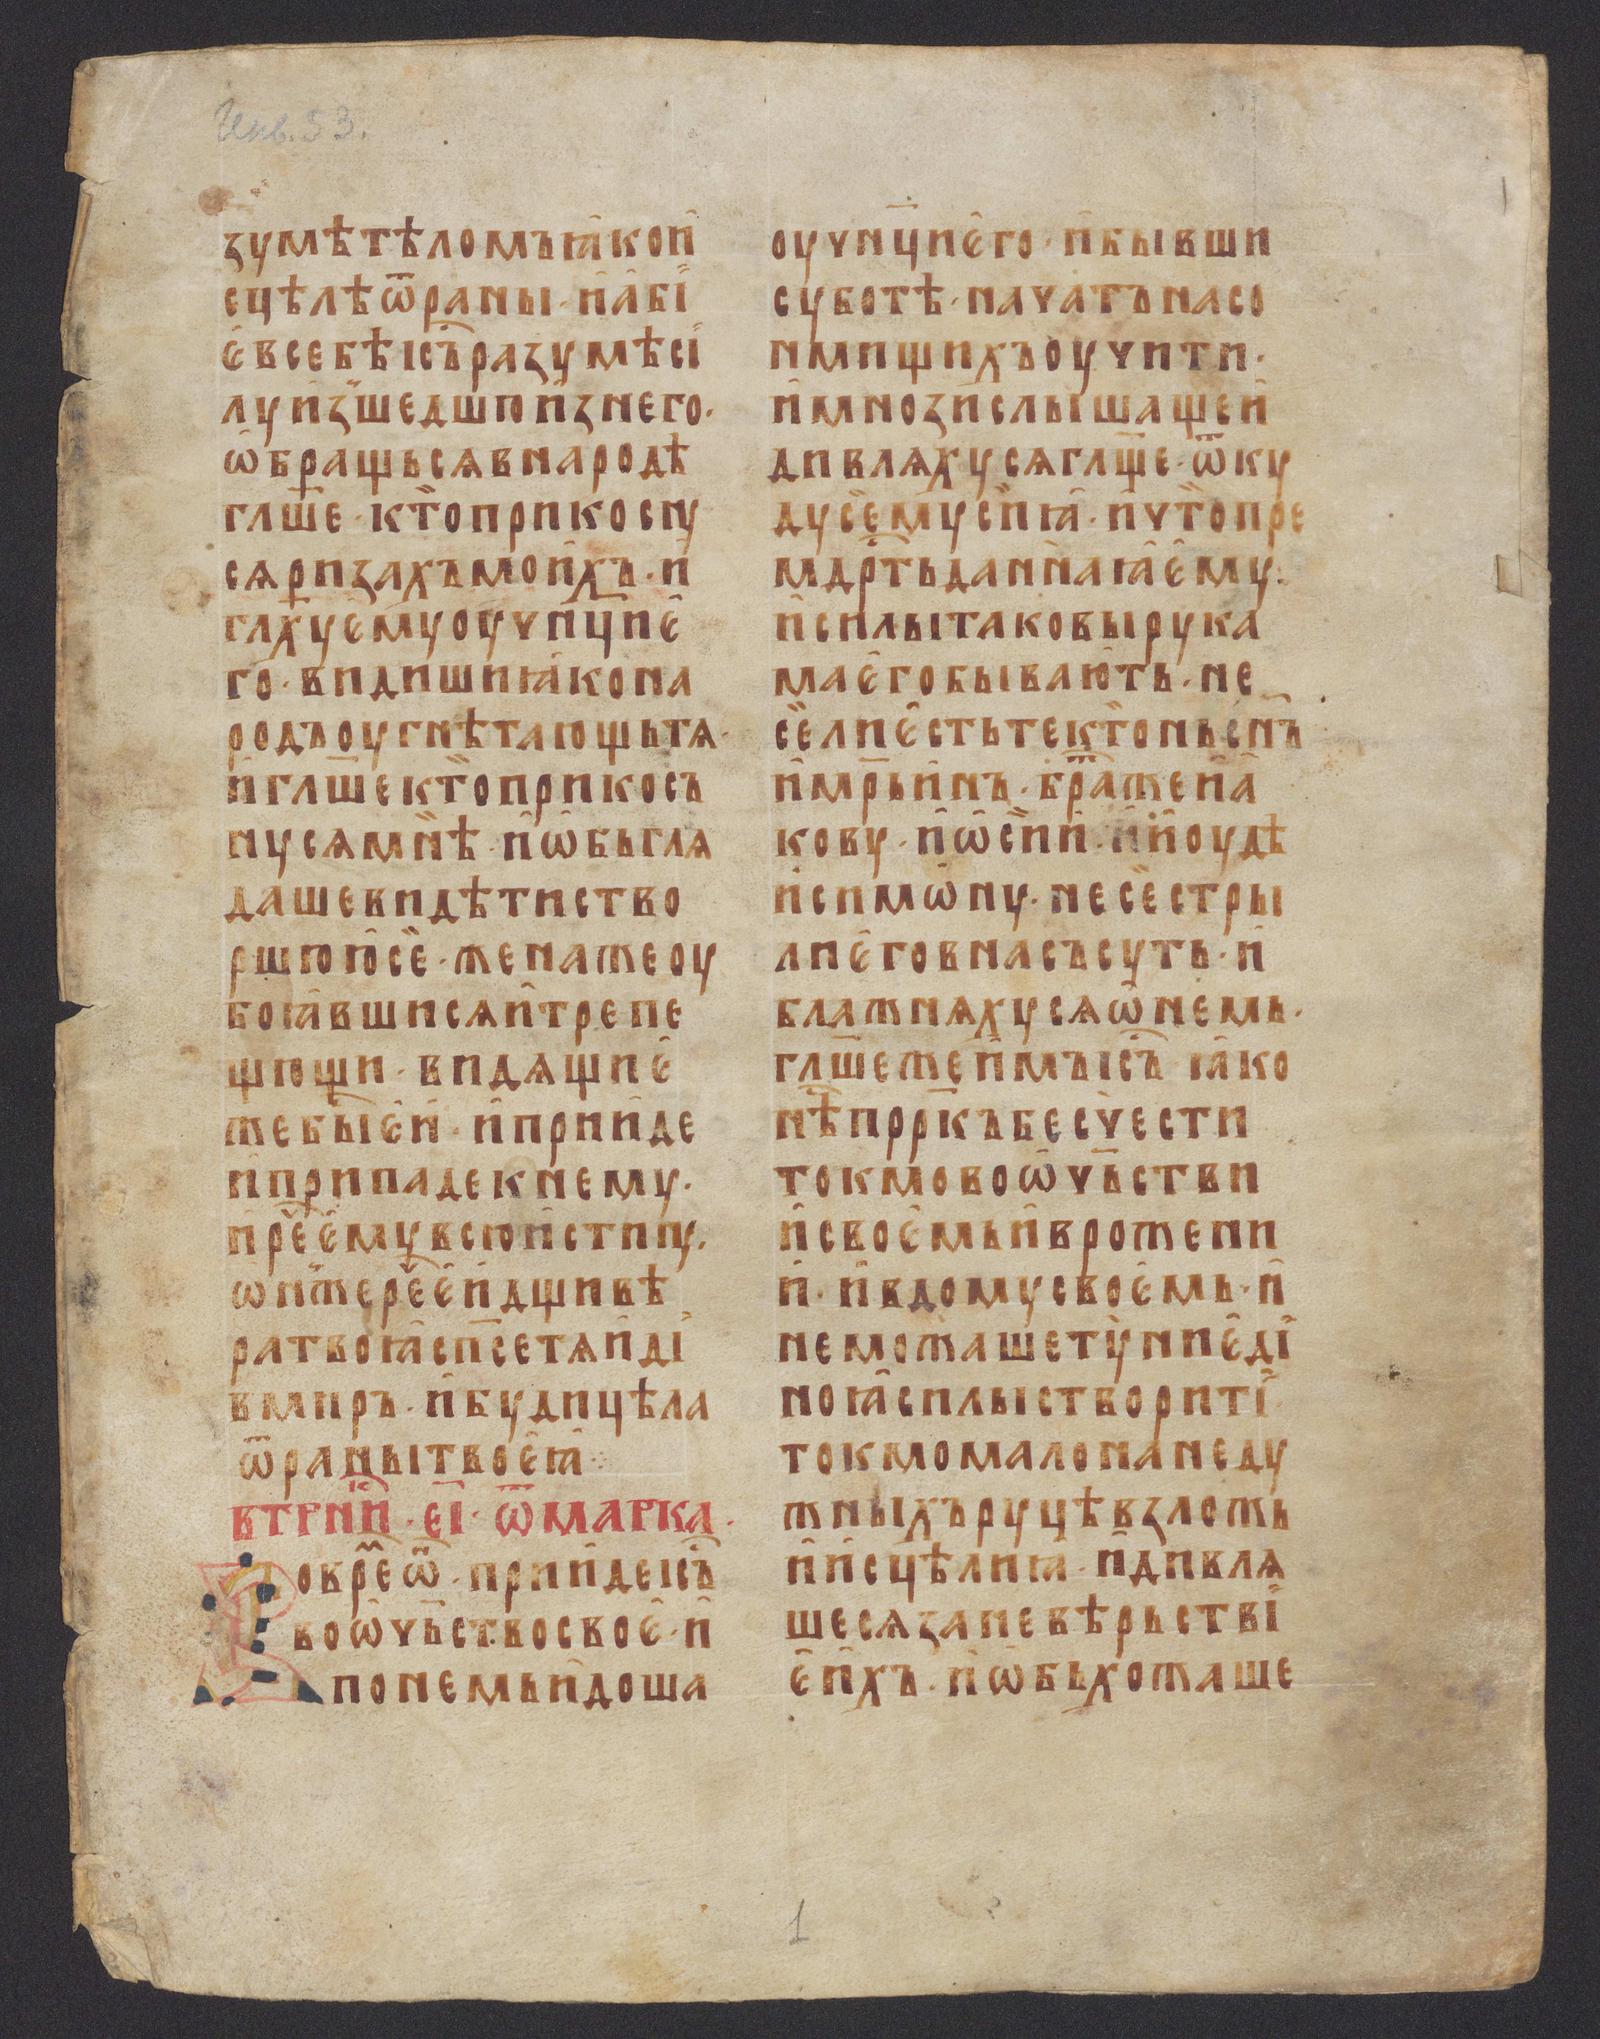 Инв. 53.
зумѣтѣломъꙗ҆кои҆
сцѣлѣѿраны · и҆а҆бї
є҆всебѣісъ҃разумѣсї
луи҆зшедшюи҆знего ·
ѡ҆бращьсѧвнародѣ
гл҃ше · ктоприкосну
сѧризахъмои҆хъ · и҆
гл҃хуємуоуч҃нциє҆
го · видишиꙗ҆кона
родъоугнѣтающьтѧ ·
и҆гл҃шектоприкосъ
нусѧмнѣ · и҆ѡ҆бьглѧ
дашевидѣтиство
ршюю҆се · женажеоу
боꙗ҆вшисѧи҆трепе
щющи · видѧщиє҆
жебыє҆и҆ · и҆прии҆де
и҆припадекнему ·
и҆реє҆мувсюи҆стину ·
ѡнжерееи҆дщивѣ
ратвоꙗ҆сп҃сетѧи҆дї
вмиръ · и҆будицѣла
ѿранытвоє҆ꙗ҆ ·
втрни҆к · єі҃ · ѿмарка ·
Вовреѡ҆ · прии҆деісъ҃
воѡ҆ч҃ьствосвоє҆ · и҆
понемьи҆доша
оуч҃нциє҆го · и҆бывши
суботѣ · начатънасо
нмищихъоучити ·
и҆мнозислышащеи҆
дивлѧхусѧгл҃ще · ѿку
дусемусиꙗ҆ · и҆чтопре
мдр҃тьданнаꙗ҆є҆му ·
и҆силытаковырука
має҆гобываю҆ть · не
селиє҆стьтектоньсн҃ъ
и҆мр҃ьи҆нъ · бр҃атжеи҆а҆
кову · и҆ѡ҆сии҆ · и҆и҆оудѣ
и҆симѡ҆ну · несестры
лиє҆говнасъсуть · и҆
блажнѧхусѧѡ҆немь ·
гл҃шежеи҆мъісъ҃ ꙗ҆ко
нѣ҃пррк҃ъбесчести
токмовоѡ҆ч҃ьстви
и҆своє҆мьи҆врожени
и҆ · и҆вдомусвоє҆мь · и҆
неможашетуниє҆дї
ноꙗ҆силыстворитї ·
токмомалонанеду
жныхъруцѣвзложь
и҆и҆сцѣлиꙗ҆ · и҆дивлѧ
шесѧзаневѣрьствї
є҆и҆хъ · и҆ѡ҆бьхожаше
1